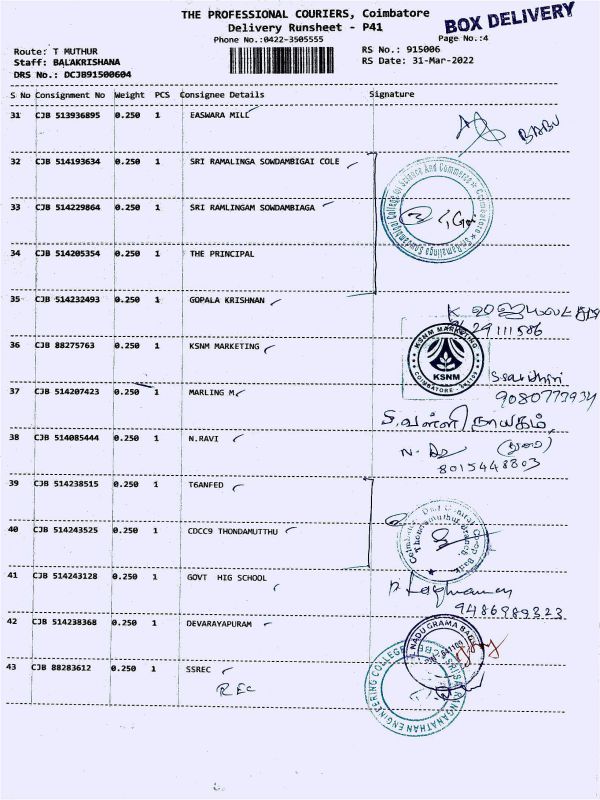 THE PROFESSIONAL COURIERS, Coimbatore
BOX DELIVERY
Delivery Runsheet - P41
Phone No.:0422-3505555
Page No.:4
Route: T MUTHUR
RS No.: 915006
Staff: BALAKRISHANA
RS Date: 31-Mar-2022
DRS No.: DCJB91500604
S No Consignment No Weight PCS Consignee Details Signature
31 CJB 513936895 0.250 1 EASWARA MILL
BABU
32 CJB 514193634 0.250 1 SRI RAMALINGA SOWDAMBIGAI COLE
33 CJB 514229864 0.250 1 SRI RAMLINGAM SOWDAMBIAGA
34 CJB 514205354 0.250 1 THE PRINCIPAL
35 CJB 514232493 0.250 1 GOPALA KRISHNAN
36 CJB 88275763 0.250 1 KSNM MARKETING
KSNM MARKETING
KSNM
COIMBATORE
37 CJB 514207423 0.250 1 MARLING M
38 CJB 514085444 0.250 1 N.RAVI
8015448803
39 CJB 514238515 0.250 1 T6ANFED
40 CJB 514243525 0.250 1 CDCC9 THONDAMUTTHU
41 CJB 514243128 0.250 1 GOVT HIG SCHOOL
9486989323
42 CJB 514238368 0.250 1 DEVARAYAPURAM
43 CJB 88283612 0.250 1 SSREC
REC